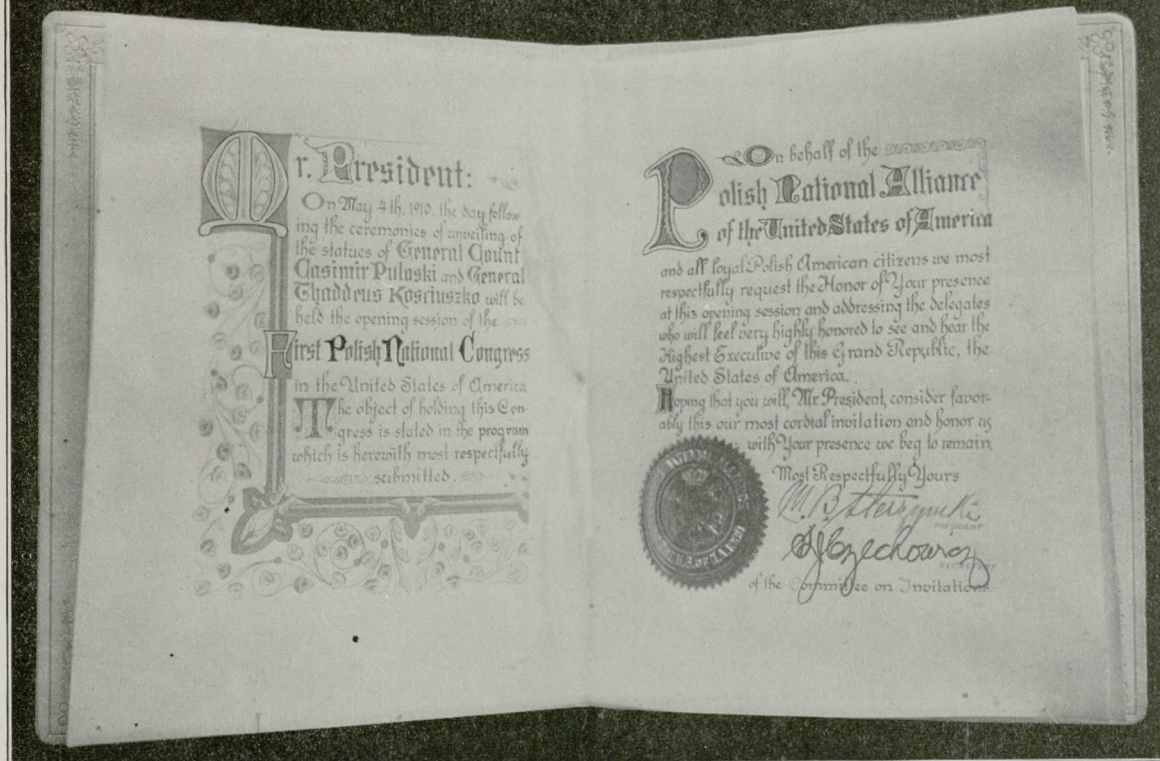 Mr. President:
On May 4th, 1910, the day follow-
ing the ceremonies of unveiling of
the statues of General Count
Casimir Pulaski and General
Thaddeus Kosciuszko will be
held the opening session of the
First Polish National Congress
in the United States of America
The object of holding this Con-
gress is stated in the program
which is herewith most respectfully
submitted.
On behalf of the
Polish National Alliance
of the United States of America
and all loyal Polish American citizens we most
respectfully request the Honor of Your presence
at this opening session and addressing the delegates
who will feel very highly honored to see and hear the
Highest Executive of this Grand Republic, the
United States of America.
Hoping that you will, Mr. President, consider favor-
ably this our most cordial invitation and honor us
with Your presence we beg to remain,
Most Respectfully Yours
M. B. Steczynski
PRESIDENT
S. J. Czechowicz
SECRETARY
of the Committee on Invitations.